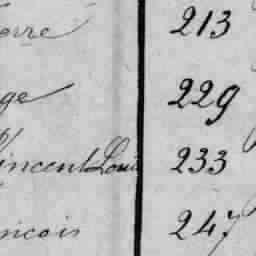 erre 213
ge 229
Vincent Louis 233
ncois 247